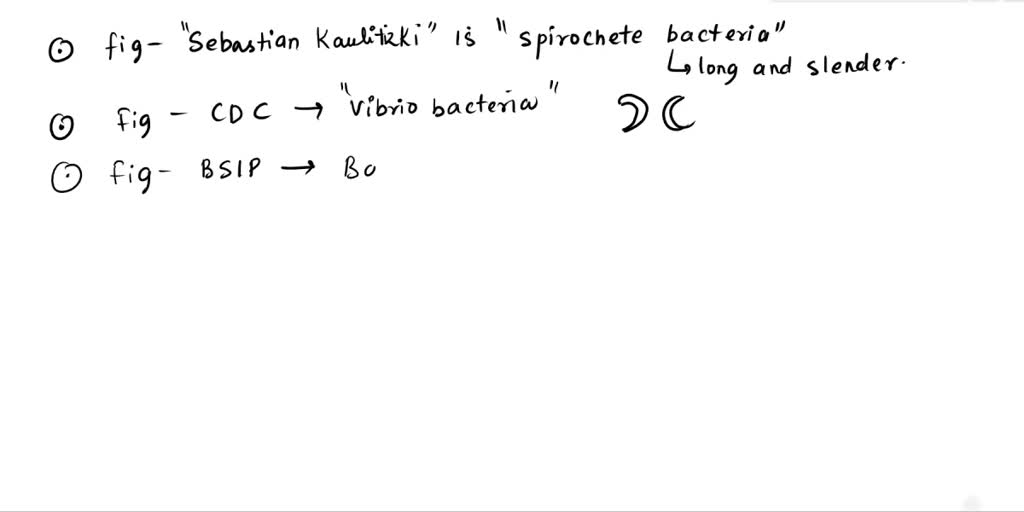 fig- "Sebastian Kaulitizki" is "spirochete bacteria"
↳ long and slender.
fig - CDC → "vibrio bacteria"
fig- BSIP → Ba